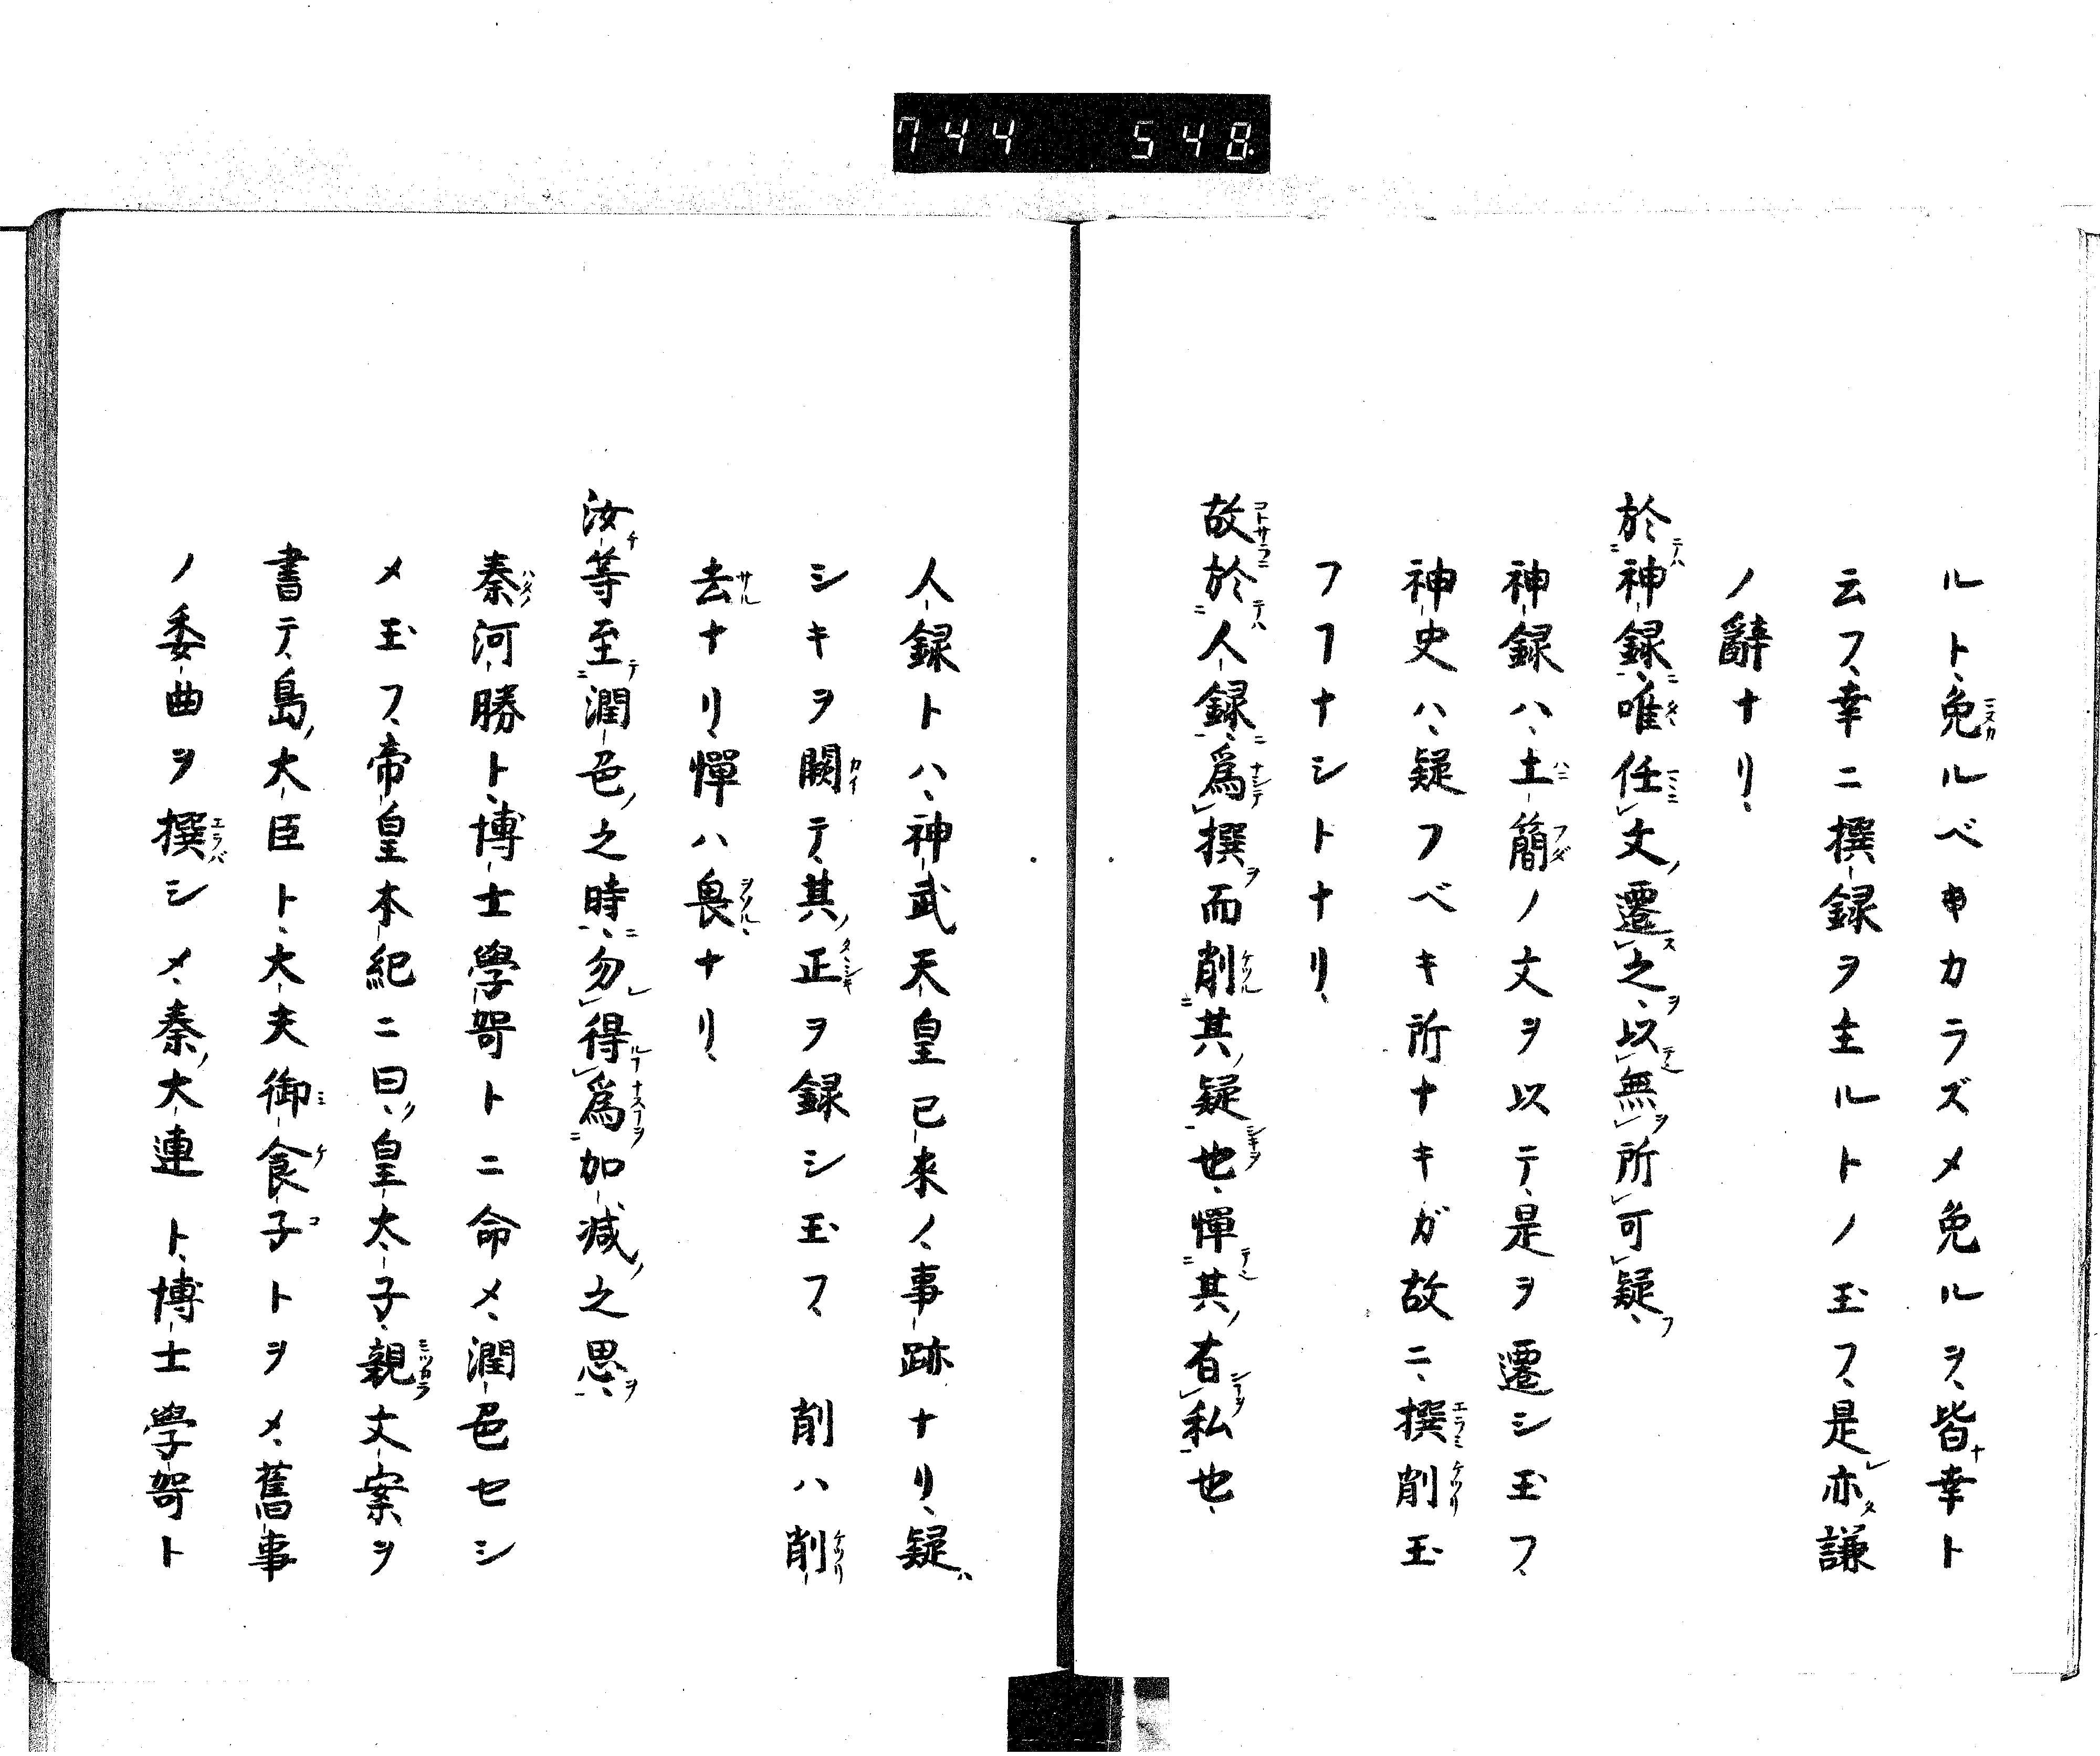 744 548.
ルト、免ルベキカラズメ免ルヲ、皆幸ト
云フ、幸ニ撰録ヲ主ルトノ玉フ、是亦謙
ノ辭ナリ、
於神録、唯任文遷之、以無所可疑、
神録ハ、土簡ノ文ヲ以テ、是ヲ遷シ玉フ、
神史ハ、疑フベキ所ナキガ故ニ、撰削玉
フフナシトナリ、
故於人録、爲撰而削其疑也、憚其有私也、
人録トハ、神武天皇已來ノ、事跡ナリ、疑
シキヲ闕テ、其正ヲ録シ玉フ、削ハ削
去ナリ、憚ハ畏ナリ、
汝等至潤色之時、勿得爲加減之思、
秦河勝ト、博士學哿トニ命メ、潤色セシ
メ玉フ、帝皇本紀ニ曰、皇太子、親文案ヲ
書テ、島大臣ト、大夫御食子トヲメ、舊事
ノ委曲ヲ撰シメ、秦大連ト、博士學哿ト